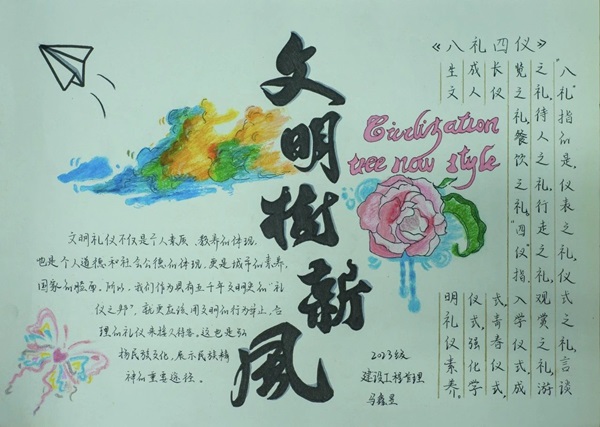 文明树新风
《八礼四仪》
"八礼"指的是,仪表之礼,仪式之礼,言谈
之礼,待人之礼,行走之礼,观赏之礼,游
览之礼,餐饮之礼。"四仪"指,入学仪式,成
长仪式,青春仪式,
成人仪式,强化学
生文明礼仪素养。
Civilization
tree now style
文明礼仪不仅是个人素质、教养的体现,
也是个人道德和社会公德的体现,更是城市的素养,
国家的脸面。所以,我们作为具有五千年文明史的"礼
仪之邦",就更应该用文明的行为举止,合
理的礼仪来待人待客。这也是弘
扬民族文化、展示民族精
神的重要途径。
2023级
建设工程管理